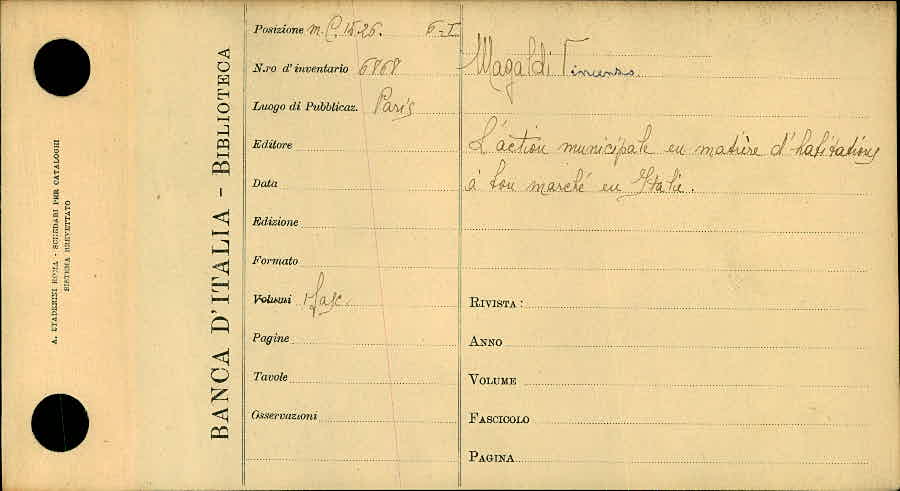 A. STADERINI ROMA - SCHEDARI PER CATALOGHI
SISTEMA BREVETTATO
BANCA D'ITALIA - BIBLIOTECA
Posizione m. C. 15.26. 6-I
N.ro d'inventario 6868
Luogo di Pubblicaz. Paris
Editore
Data
Edizione
Formato
Volumi 1 fasc.
Pagine
Tavole
Osservazioni
Magaldi Vincenzo.
L'action municipale en matière d'habitations
à bon marché en Italie.
RIVISTA:
ANNO
VOLUME
FASCICOLO
PAGINA